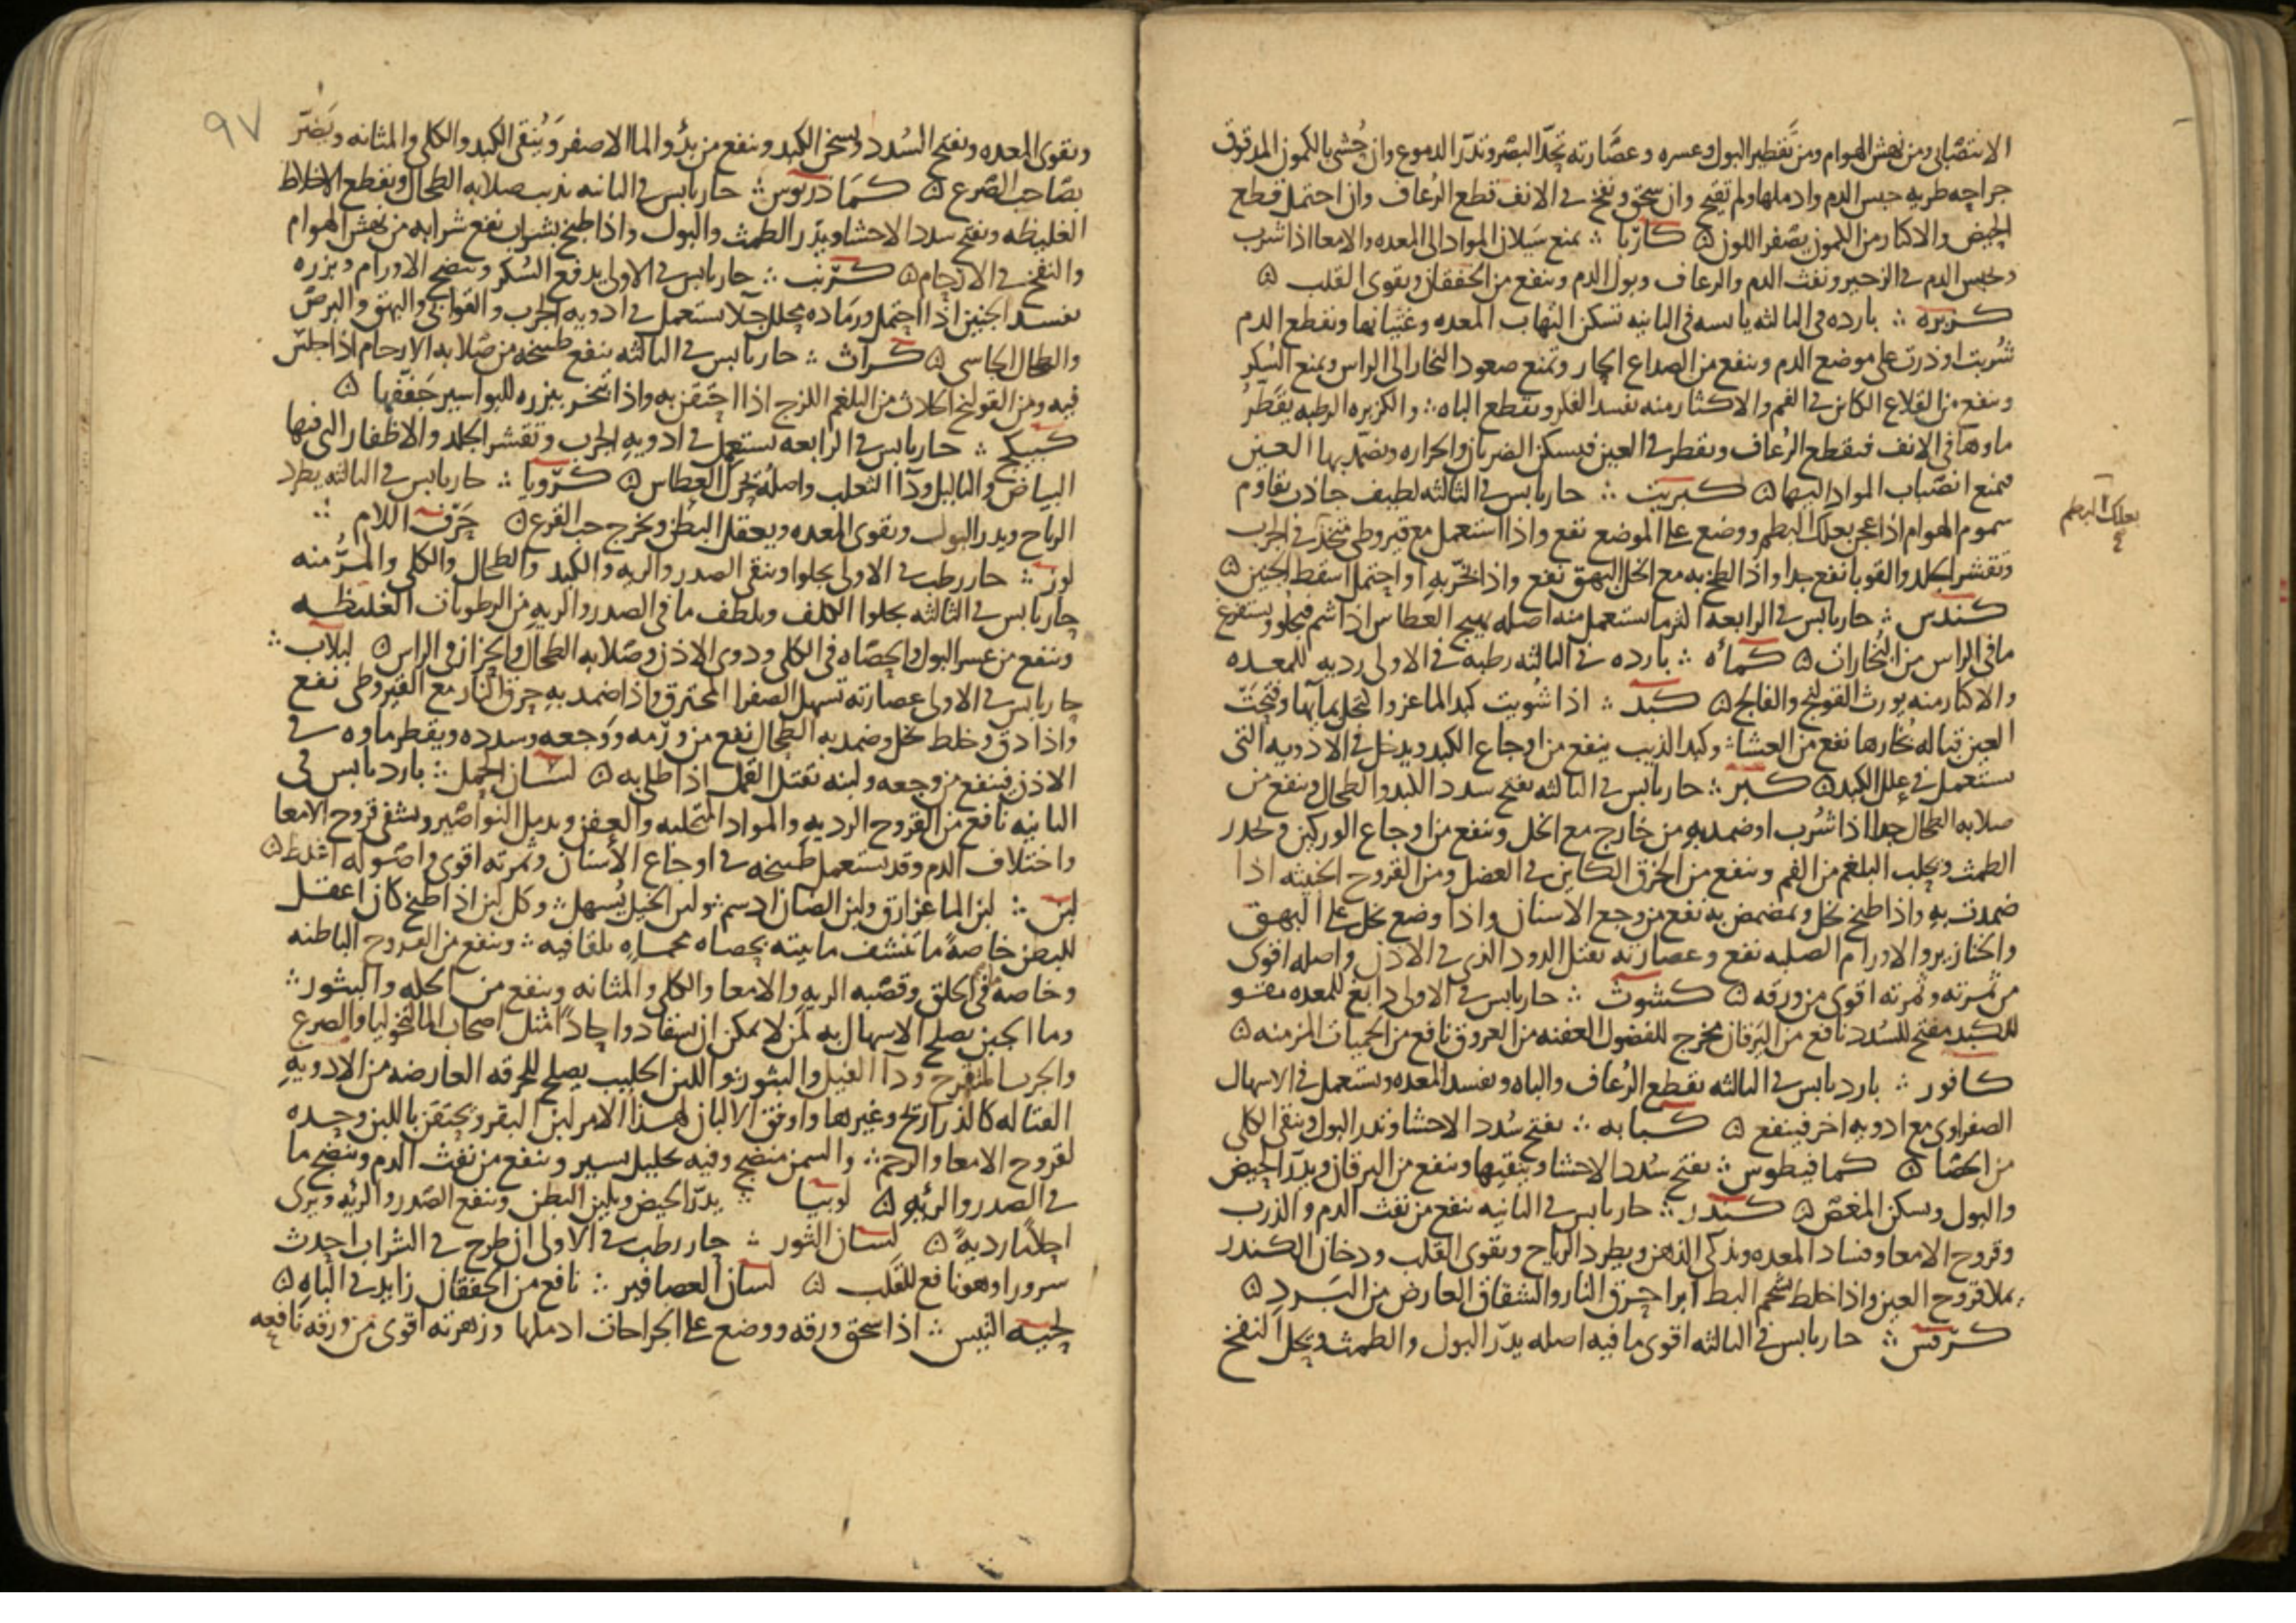 الانتصابي ومن نهش الهوام ومن تقطير البول وعسره وعصارته تحد البصر وتدر الدموع وان حشي بالكمون المدقوق
جراحه طريه حبس الدم وادملها ولم تقيح وان سحق ونفخ في الانف قطع الرعاف وان احتمل قطع
الحيض والاكثار من الكمون يصفر اللون ۞ كاربا ؞ يمنع سيلان المواد الى المعده والامعا اذا شرب
وحبس الدم في الزحير ونفث الدم والرعاف وبول الدم وينفع من الخفقان ويقوى القلب ۞
كزبره ؞ بارده في الثالثه يابسه في الثانيه تسكن التهاب المعده وغثيانها وتقطع الدم
شربت او ذرت على موضع الدم وينفع من الصداع الحار وتمنع صعود البخار الى الراس ويمنع السكر
وينفع من القلاع الكائن في الفم والاكثار منه تفسد الفكر وتقطع الباه ؞ والكزبره الرطبه يقطر
ماوها في الانف فيقطع الرعاف ويقطر في العين فيسكن الضربان والحراره ويضمد بها العين
فيمنع انصباب المواد اليها ۞ كبريت ؞ حار يابس في الثالثه لطيف جاذب يقاوم
سموم الهوام اذا عجن بعلك البطم ووضع على الموضع نفع واذا استعمل مع قيروطي متخذ في الجرب
وتقشر الجلد والقوبا نفع جدا واذا لطخ به مع الخل البهق نفع واذا تبخر به او احتمل اسقط الجنين ۞
كندس ؞ حار يابس في الرابعه اكثر ما يستعمل منه اصله يهيج العطاس اذا شم فيجلو ويستفرغ
ما في الراس من البخارات ۞ كمأه ؞ بارده في الثالثه رطبه في الاولى رديه للمعده
والاكثار منه يورث القولنج والفالج ۞ كبد ؞ اذا شويت كبد الماعز واكتحل بمائها وفتحت
العين قباله بخارها نفع من العشا ؞ وكبد الذيب ينفع من اوجاع الكبد ويدخل في الادويه التي
تستعمل في علل الكبد ۞ كبر ؞ حار يابس في الثالثه يفتح سدد الكبد والطحال وينفع من
صلابه الطحال جدا اذا شرب او ضمد به من خارج مع الخل وينفع من اوجاع الوركين ويحدر
الطمث ويجلب البلغم من الفم وينفع من الخرق الكاين في العضل ومن القروح الخبيثه اذا
ضمدت به واذا طبخ بخل وتمضمض به نفع من وجع الاسنان واذا وضع بخل على البهق
والخنازير والاورام الصلبه نفع وعصارته تقتل الدود الذي في الاذن واصله اقوى
من ثمرته وثمرته اقوى من ورقه ۞ كشوث ؞ حار يابس في الاولى دابغ للمعده مقو
للكبد مفتح للسدد نافع من اليرقان مخرج للفضول العفنه من العروق نافع من الحميات المزمنه ۞
كافور ؞ بارد يابس في الثالثه يقطع الرعاف والباه ويفسد المعده ويستعمل في الاسهال
الصفراوي مع ادويه اخر فينفع ۞ كبابه ؞ يفتح سدد الاحشا وتدر البول وينقي الكلى
من الحصا ۞ كمافيطوس ؞ يفتح سدد الاحشا وينقيها وينفع من اليرقان ويدر الحيض
والبول ويسكن المغص ۞ كندر ؞ حار يابس في الثانيه ينفع من نفث الدم والذرب
وقروح الامعا وفساد المعده ويذكي الذهن ويطرد الرياح ويقوى القلب ودخان الكندر
يملا قروح العين واذا خلط بشحم البط ابرا حرق النار والشقاق العارض من البرد ۞
كرفس ؞ حار يابس في الثالثه اقوى ما فيه اصله يدر البول والطمث ويحل النفخ
بعلك البطم
٩٧
ويقوى المعده ويفتح السدد ويسخن الكبد وينفع من بدو الما الاصفر وينقي الكبد والكلى والمثانه ويضر
بصاحب الصرع ۞ كمادريوس ؞ حار يابس في الثانيه يذيب صلابه الطحال ويقطع الاخلاط
الغليظه ويفتح سدد الاحشا ويدر الطمث والبول واذا طبخ بشراب نفع شرابه من نهش الهوام
والنفخ في الارحام ۞ كرنب ؞ حار يابس في الاولى يدفع السكر وينضج الاورام وبزره
يفسد الجنين اذا احتمل ورماده يحلل جلا يستعمل في ادويه الجرب والقوابي والبهق والبرص
والطحال الجاسي ۞ كراث ؞ حار يابس في الثالثه ينفع طبيخه من صلابه الارحام اذا جلس
فيه ومن القولنج الحادث من البلغم اللزج اذا احتقن به واذا تبخر ببزره للبواسير جففها ۞
كبيكج ؞ حار يابس في الرابعه يستعمل في ادويه الجرب وتقشر الجلد والاظفار التي فيها
البياض والثاليل ودآ الثعلب واصله يحرك العطاس ۞ كرويا ؞ حار يابس في الثالثه يطرد
الرياح ويدر البول ويقوى المعده ويعقل البطن ويخرج حب القرع ۞ حرف اللام ؞
لوز ؞ حار رطب في الاولى يجلوا وينقي الصدر والريه والكبد والطحال والكلى والمر منه
حار يابس في الثالثه يجلوا الكلف ويلطف ما في الصدر والريه من الرطوبات الغليظه
وينفع من عسر البول والحصاه في الكلى ودوي الاذن وصلابه الطحال والحزاز في الراس ۞ لبلاب ؞
حار يابس في الاولى عصارته تسهل الصفرا المحترق واذا ضمد به حرق النار مع القيروطي نفع
واذا دق وخلط بخل وضمد به الطحال نفع من ورمه ووجعه وسدده ويقطر ماوه في
الاذن فينفع من وجعه ولبنه تقتل القمل اذا طلي به ۞ لسان الحمل ؞ بارد يابس في
الثانيه نافع من القروح الرديه والمواد المتحلبه والعفن ويدمل النواصير ويشفي قروح الامعا
واختلاف الدم وقد يستعمل طبيخه في اوجاع الاسنان وثمرته اقوى واصوله اغلظ ۞
لبن ؞ لبن الماعز ارق ولبن الضان ادسم ؞ ولبن الخيل يسهل ؞ وكل لبن اذا طبخ كان اعقل
للبطن خاصة ما تنشف مايته بحصاه محماه يلقا فيه ؞ وينفع من القروح الباطنه
وخاصه في الحلق وقصبه الريه والامعا والكلى والمثانه وينفع من الحكه والبثور ؞
وما الجبن يصلح الاسهال به لمن لا يمكن ان ينقاد دواء حادا مثل اصحاب المالنخوليا والصرع
والجرب المتقرح ودآ الفيل والبثور ؞ واللبن الحليب يصلح للحرقه العارضه من الادويه
القتاله كالذراريح وغيرها واوفق الالبان لهذا الامر لبن البقر ويحتقن باللبن وحده
لقروح الامعا والرحم ؞ والسمن منضج وفيه تحليل يسير وينفع من نفث الدم وينضج ما
في الصدر والريه ۞ لوبيا ؞ يدر الحيض ويلين البطن وينفع الصدر والريه ويرى
احلاما رديه ۞ لسان الثور ؞ حار رطب في الاولى ان طرح في الشراب احدث
سرورا وهو نافع للقلب ۞ لسان العصافير ؞ نافع من الخفقان زايد في الباه ۞
لحيه التيس ؞ اذا سحق ورقه ووضع على الجراحات ادملها وزهرته اقوى من ورقه نافعه